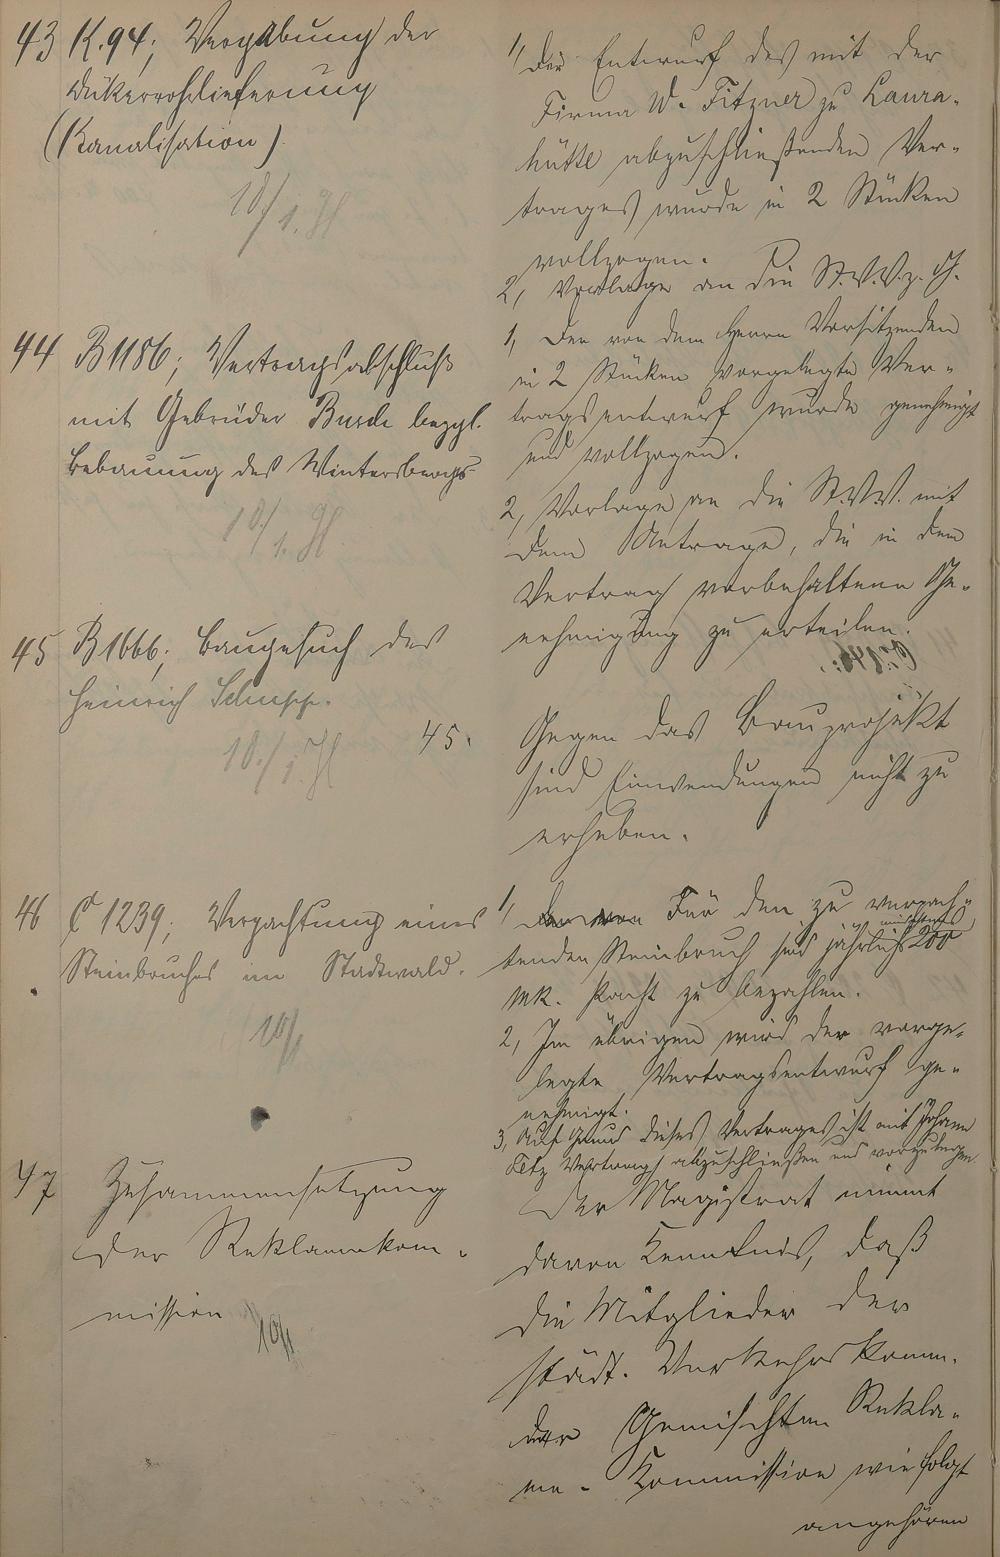 43 K. 94; Vergebung der
Dükerrohrlieferung
(Kanalisation)
10/1. Gl
1, Der Entwurf des mit der
Firma W. Fitzner zu Laura-
hütte abzuschließenden Ver-
trages wurde in 2 Stücken
vollzogen.
2, Vorlage an die St.V.V. z. G.
44 B 1186; Vertragsabschluß
mit Gebrüder Burde bezgl.
Bebauung des Wintersbergs
10/1. Gl
1, Der von dem Herrn Vorsitzenden
in 2 Stücken vorgelegte Ver-
tragsentwurf wurde genehmigt
und vollzogen.
2, Vorlage an die St.V.V. mit
dem Antrage, die in dem
Vertrag vorbehaltene Ge-
nehmigung zu erteilen.
45 B 1666; Baugesuch des
Heinrich Schupp.
10./1. Gl
45.
Gegen das Bauprojekt
sind Einwendungen nicht zu
erheben.
46 C 1239; Verpachtung eines
Steinbruches im Stadtwald.
10/1
1, Für den zu verpach-
tenden Steinbruch sind jährlich mindestens 200
Mk. Pacht zu bezahlen.
2, Im übrigen wird der vorge-
legte Vertragsentwurf ge-
nehmigt.
3, Auf Grund dieses Vertrages ist mit Johann
Vertrag abzuschließen und vorzulegen.
47 Zusammensetzung
der Reklamekom-
mission
10/1
Der Magistrat nimmt
davon Kenntnis, daß
die Mitglieder der
städt. Verkehrskomm.
der Gemischten Rekla-
me-Kommission wie folgt
angehören